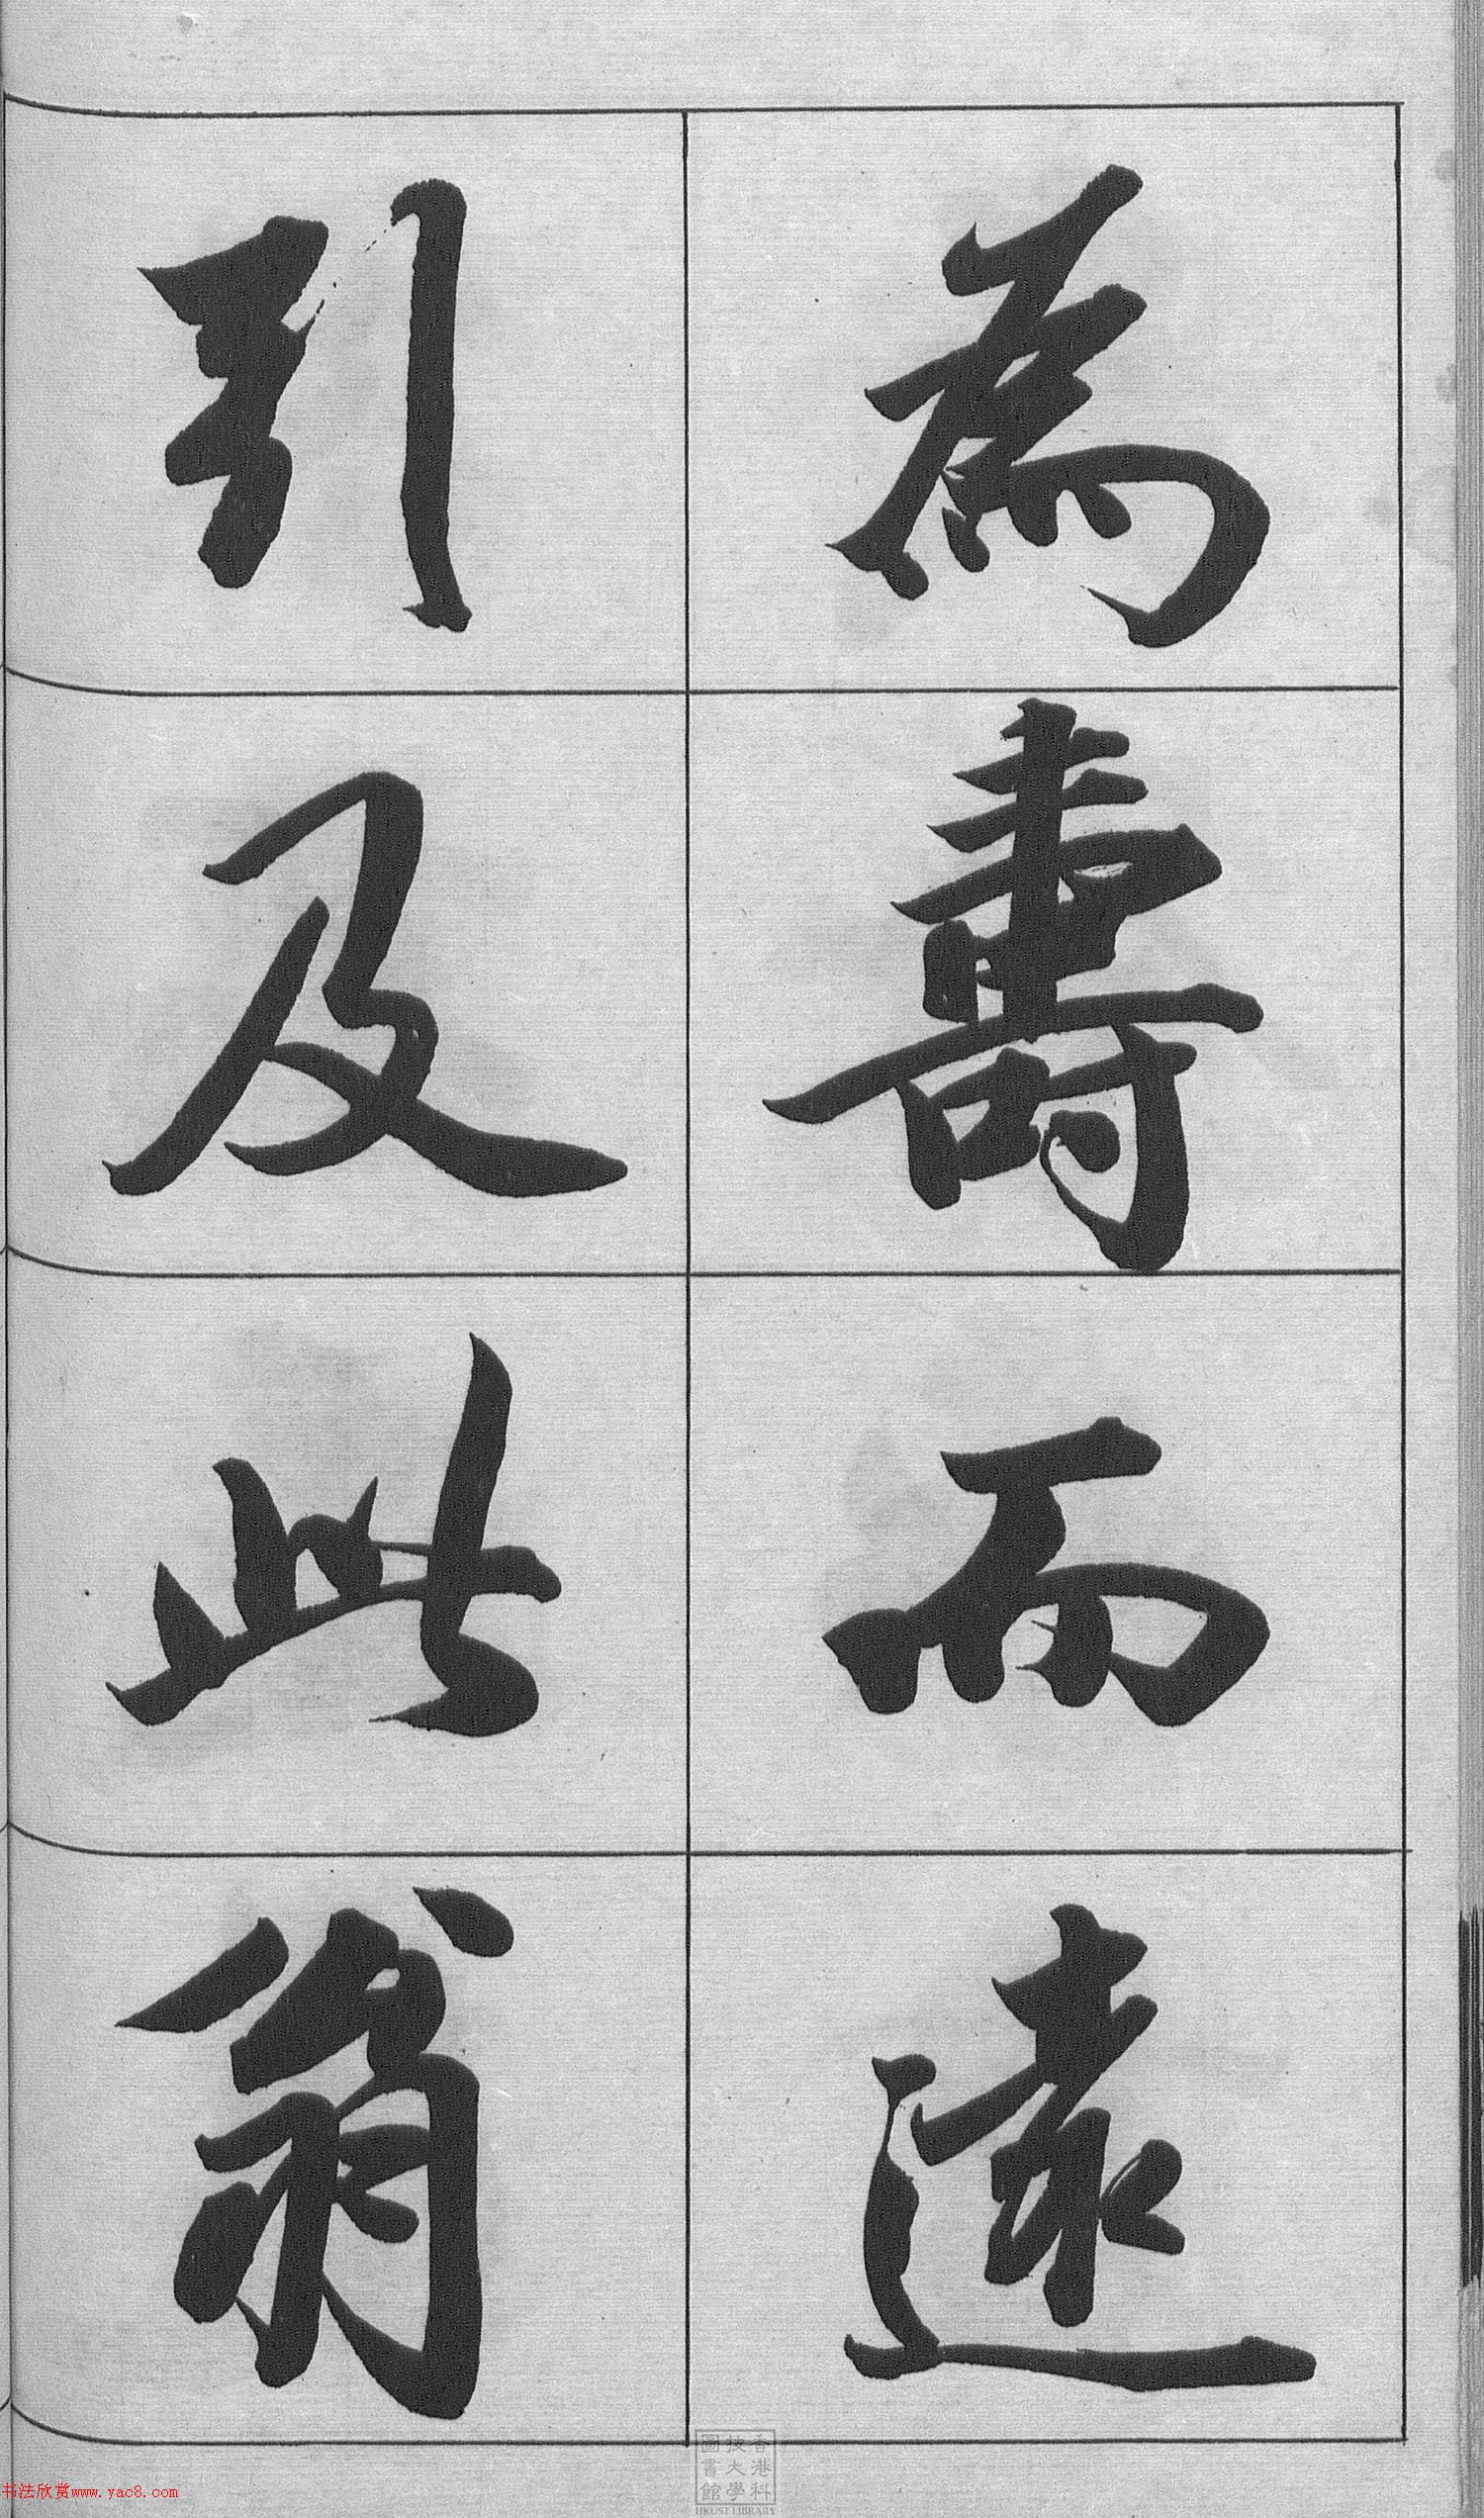 為壽而遠
引及此翁
香港科
技大學
圖書館
HKUST LIBRARY
书法欣赏www.yac8.com